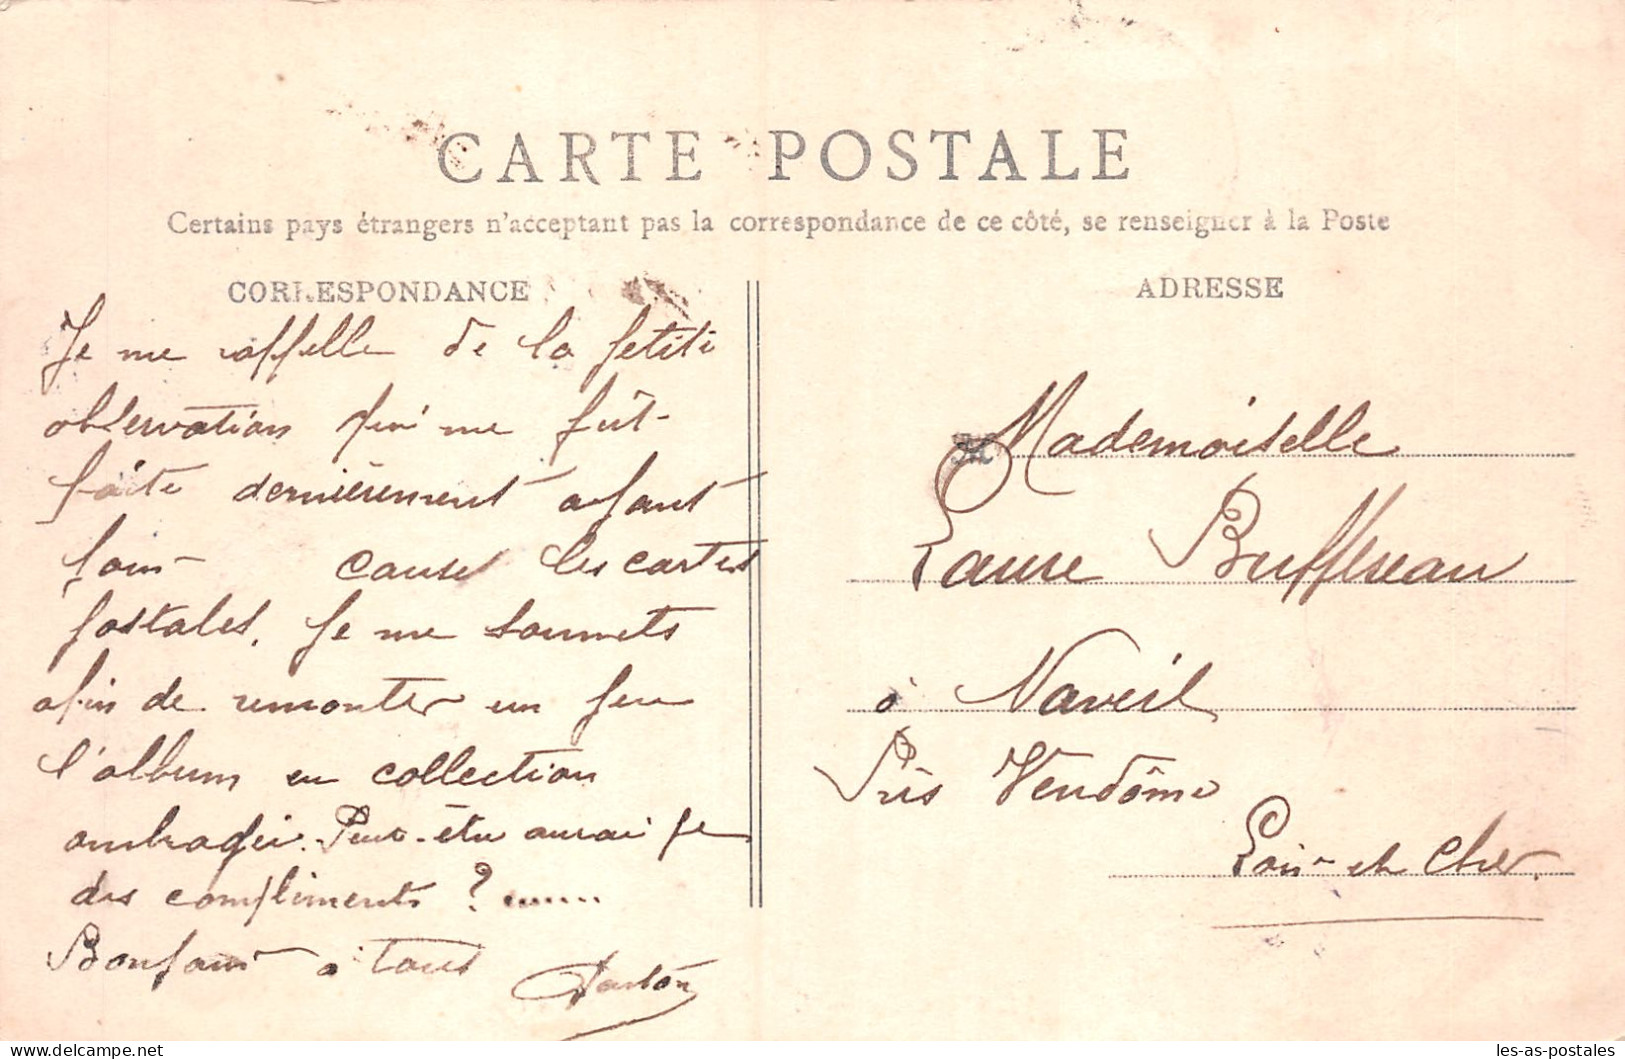 CARTE POSTALE
Certains pays étrangers n'acceptant pas la correspondance de ce côté, se renseigner à la Poste
CORRESPONDANCE
Je me rappelle de la petite
observation qui me fût
faite dernièrement ayant
pour cause les cartes
postales. Je me soumets
afin de remonter un peu
l'album en collection
Peut-être aurai je
des compliments ? .......
Bonjour à tous
Gaston
ADRESSE
Mademoiselle
Laure Buffereau
à Naveil
Près Vendôme
Loir et Cher.
delcampe.net
les-as-postales